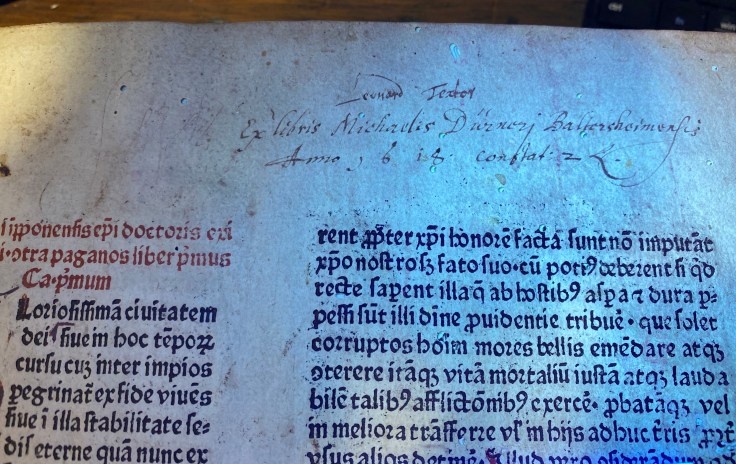 Leonard Textor
Ex libris Michaelis Dürnerj Baltersheimensis
Anno 1618. constat: 2
ſipponenſis ep̄i doctoris exi
i·ↄtra paganos liber pᵐmus
Ca·pᵐmum
Lorioſiſſimā ciuitatem
dei ſiue in hoc tēpoꝝ
curſu cuꝫ inter impios
peregrinat̄ ex fide viuēs
ſiue ī illa ſtabilitate ſe⸗
dis eterne quā nunc ex
rent ꝓpter xp̄i honorē facta ſunt nō imputāt
xp̄o noſtro ſꝫ fato ſuo·cū potiꝰ deberent ſi qͥd
recte ſaperent illa q̄ ab hoſtibꝰ aſpa ⁊ dura p̲⸗
peſſi ſūt illi diuine ꝓuidentie tribue̅·que ſolet
corruptos hoīm mores bellis emēdare atqꝫ
ↄterere itāqꝫ vitā mortaliū iuſtā atqꝫ lauda
bilē talibꝰ afflictōnibꝰ exercē·ꝓbatāqꝫ vel
in meliora trāſferre vſ̓ in hijs adhuc t̄ris ꝓpt̄
vſus alios detinē·